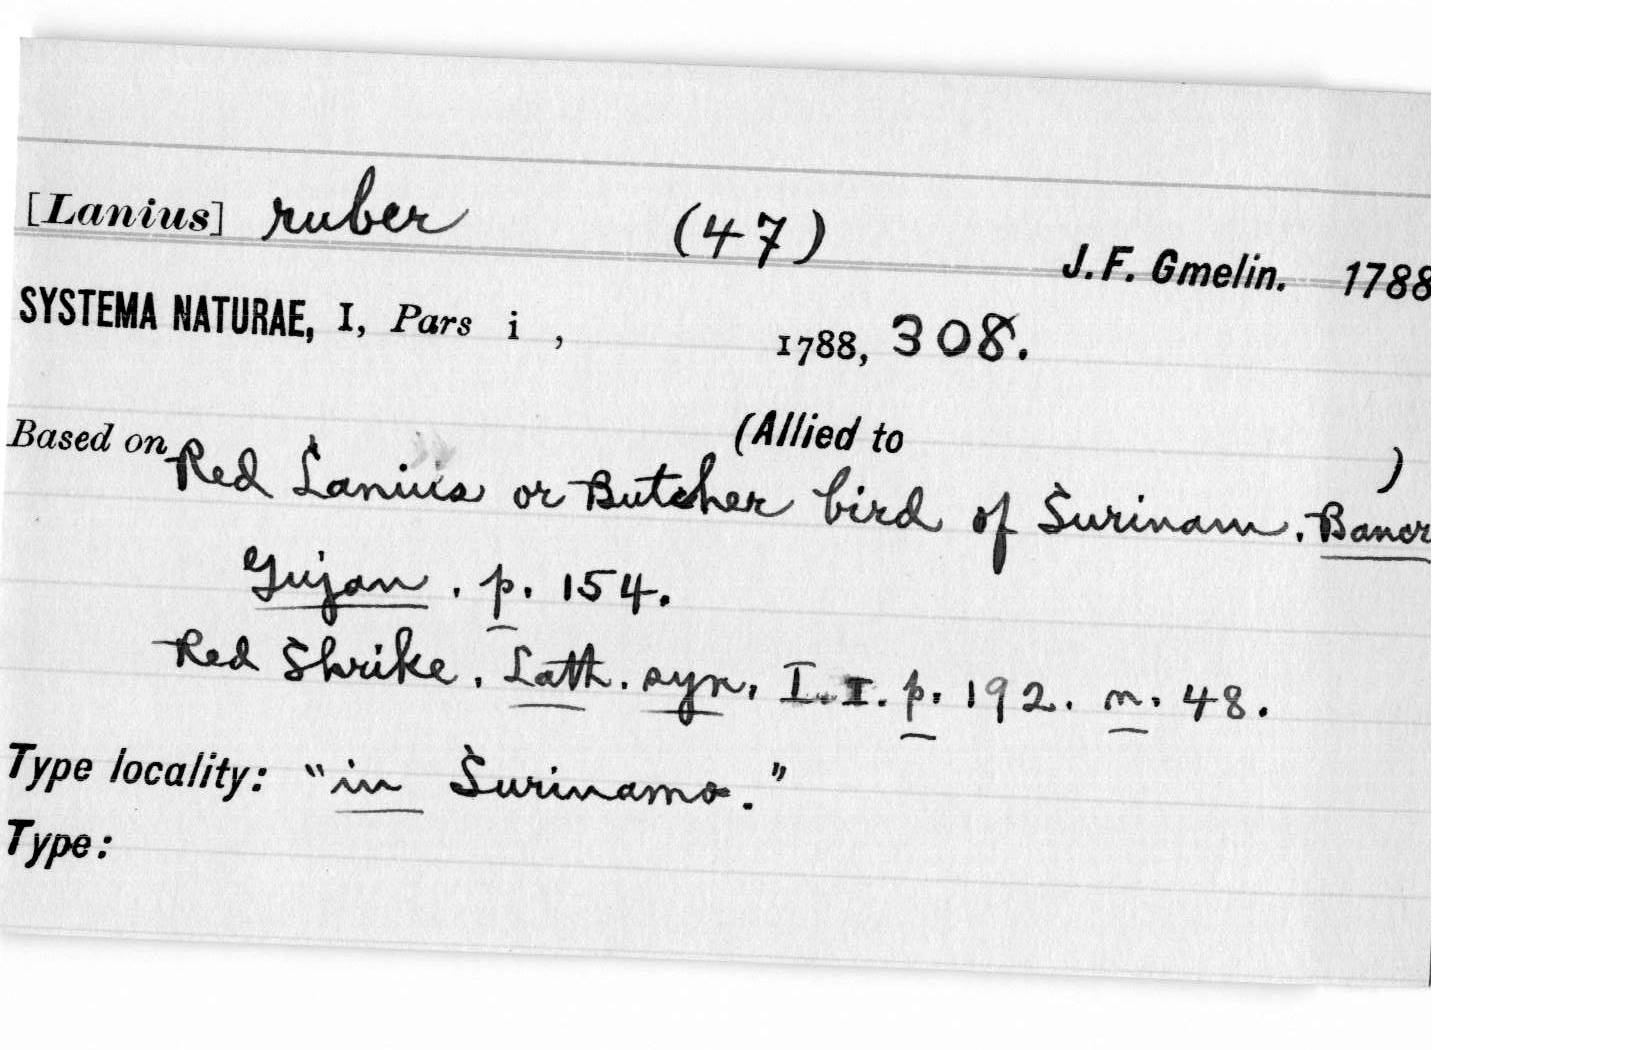 [Lanius] ruber (47) J. F. Gmelin. 1788
SYSTEMA NATURAE, I, Pars i , 1788, 308.
Based on (Allied to )
Red Lanius or Butcher bird of Surinam. Bancr
Gujan. p. 154.
Red Shrike. Lath. syn. I. I. p. 192. n. 48.
Type locality: "in Surinamo."
Type: